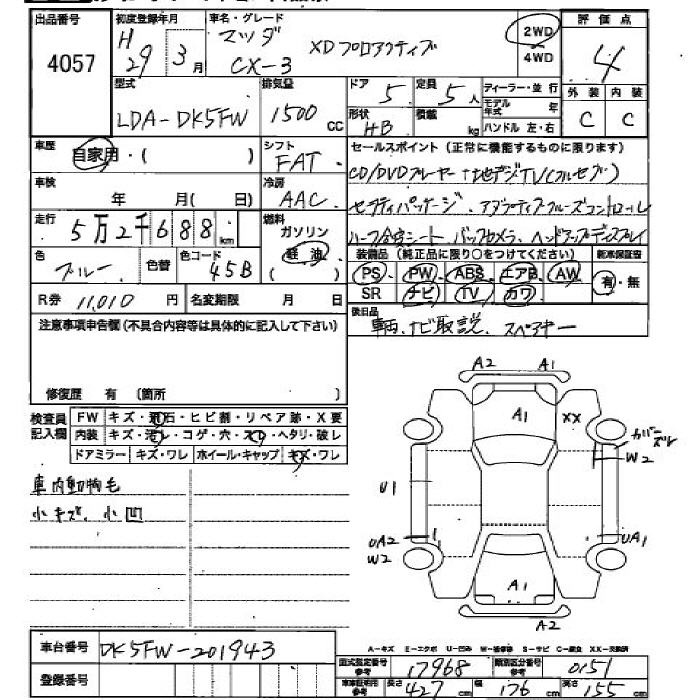 出品番号
4057
初度登録年月
H29 3月
車名・グレード
マツダ
CX-3
XDプロアクティブ
2WD
4WD
評価点
4
外装 内装
C C
型式
LDA-DK5FW
排気量
1500 CC
ドア 5
定員 5人
形状 HB
積載 kg
ディーラー・並行
モデル年式 年
ハンドル 左・右
車歴
自家用・( )
シフト
FAT
冷房
AAC
車検
年 月( 日)
走行
5万2千688km
燃料
ガソリン
軽油
色
ブルー
色替
色コード
45B
R券 11,010 円
名変期限 月 日
セールスポイント(正常に機能するものに限ります)
CD/DVDプレーヤー 地デジTV(フルセグ)
セーフティパッケージ、アダプティブクルーズコントロール
ハーフ合皮シート バックカメラ、ヘッドアップディスプレイ
装備品(純正品に限り○をつけてください)
新車保証書
PS PW ABS エアB AW
SR ナビ TV カワ
有・無
後日品
車両、ナビ取説、スペアキー
注意事項申告欄(不具合内容等は具体的に記入して下さい)
修復歴 有 (箇所
検査員記入欄
FW キズ・飛石・ヒビ割・リペア跡・X要
内装 キズ・汚レ・コゲ・穴・スレ・ヘタリ・破レ
ドアミラー キズ・ワレ ホイール・キャップ キズ・ワレ
車内動物毛
小キズ、小凹
A2 A1
A1 XX
カバーズレ
W2
U1
UA2
W2
UA1
A1
A2
A-キズ E-エクボ U-凹み W-補修跡 S-サビ C-腐食 XX-交換済
車台番号
DK5FW-201943
登録番号
型式指定番号 参考 17968
類別区分番号 参考 0151
車車証明用 参考 長さ 427 cm 幅 176 cm 高さ 155 cm